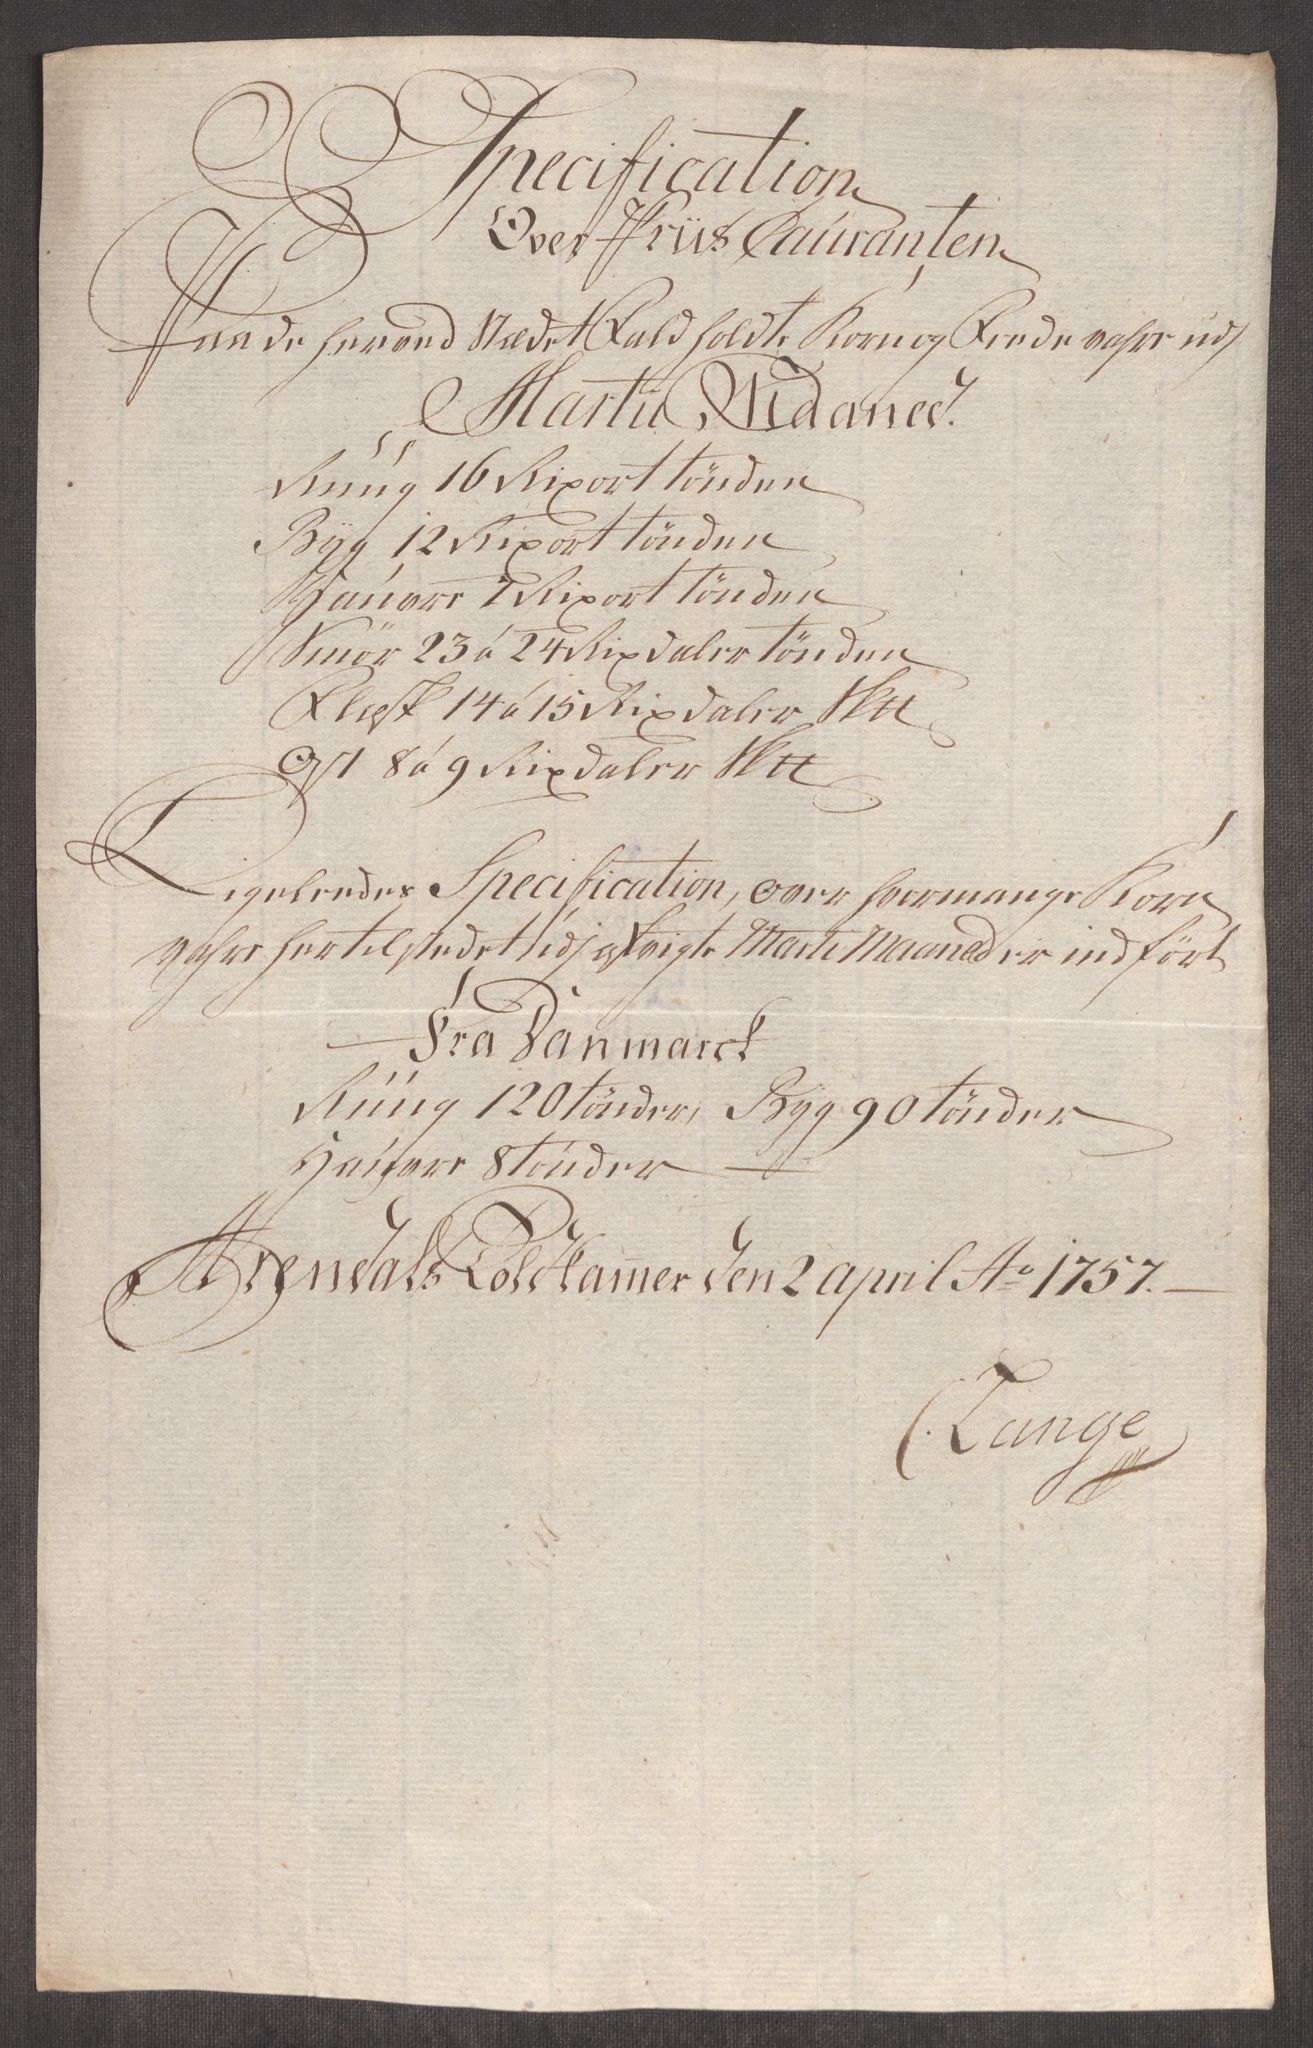 Specification
Over Priis Cauranten
Paa de herved Stædet Fald holdte Korn og Fæede vahre udj
Martii Maaned.
Rúúg 16 Rixort tönden
Byg 12 Rixort tönden
Haúvre 7 Rixort tönden
Smör 23 á 24 Rixdaler tönden
Flesk 14 á 15 Rixdaler Sktt
Ost 8 á 9 Rixdaler Sktt
Ligeleedes Specification, over hvormange Korn
vahre her til stedet udj Martii Maaned er indfört
Fra Danmarck
Rúúg 120 tönder, Byg 90 tönder
Haúvre 8 tönder
Arendals Toldkamer den 2 april Ao 1757.
C. Lange